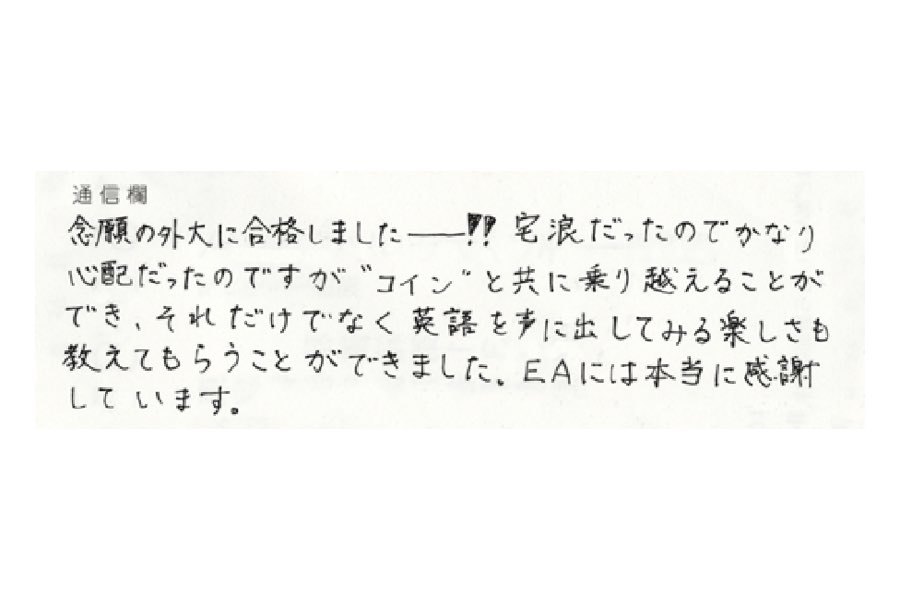 通信欄
念願の外大に合格しました——!!! 宅浪だったのでかなり
心配だったのですが"コイン"と共に乗り越えることが
でき、それだけでなく英語を声に出してみる楽しさも
教えてもらうことができました。EAには本当に感謝
しています。